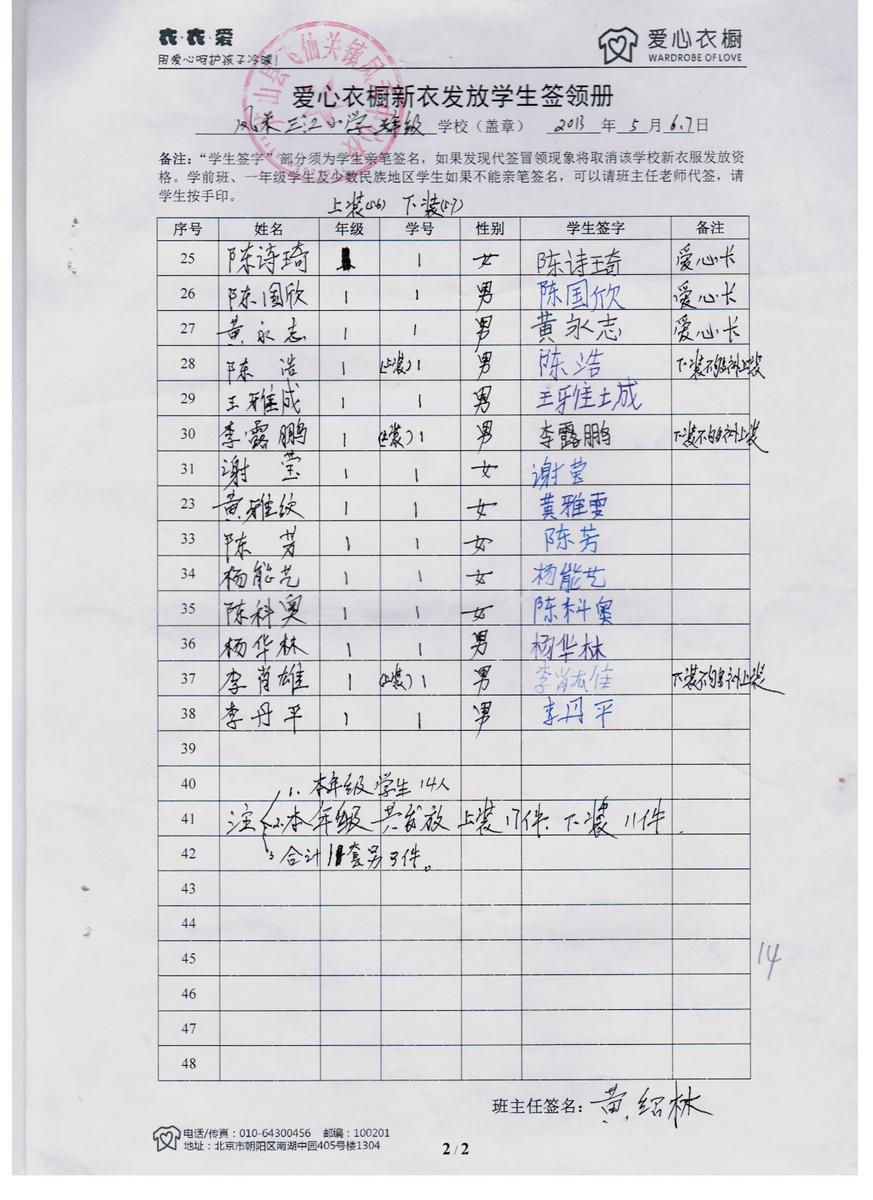 衣·衣·爱
用爱心呵护孩子冷暖!
爱心衣橱
WARDROBE OF LOVE
爱心衣橱新衣发放学生签领册
凤禾三江小学 年级 学校（盖章） 2013 年 5 月 6.7 日
备注：“学生签字”部分须为学生亲笔签名，如果发现代签冒领现象将取消该学校新衣服发放资
格。学前班、一年级学生及少数民族地区学生如果不能亲笔签名，可以请班主任老师代签，请
学生按手印。
上装(56) 下装(57)
序号 姓名 年级 学号 性别 学生签字 备注
25 陈诗琦 1 女 陈诗琦 爱心卡
26 陈国欣 1 1 男 陈国欣 爱心卡
27 黄永志 1 1 男 黄永志 爱心卡
28 陈浩 1 (上装) 1 男 陈浩 下装不够补上装
29 王雅成 1 1 男 王雅土成
30 李露鹏 1 (上装) 1 男 李露鹏 下装不够补上装
31 谢莹 1 1 女 谢莹
23 黄雅纹 1 1 女 黄雅雯
33 陈芳 1 1 女 陈芳
34 杨能艺 1 1 女 杨能艺
35 陈科奥 1 1 女 陈科奥
36 杨华林 1 1 男 杨华林
37 李肖雄 1 (上装) 1 男 李肖 下装不够补上装
38 李丹平 1 1 男 李丹平
39
40 1. 本年级学生14人
41 注 2. 本年级共发放上装17件、下装11件.
42 3 合计11套另3件。
43
44
45
14
46
47
48
班主任签名：黄绍林
电话/传真：010-64300456 邮编：100201
地址：北京市朝阳区南湖中园405号楼1304
2 / 2